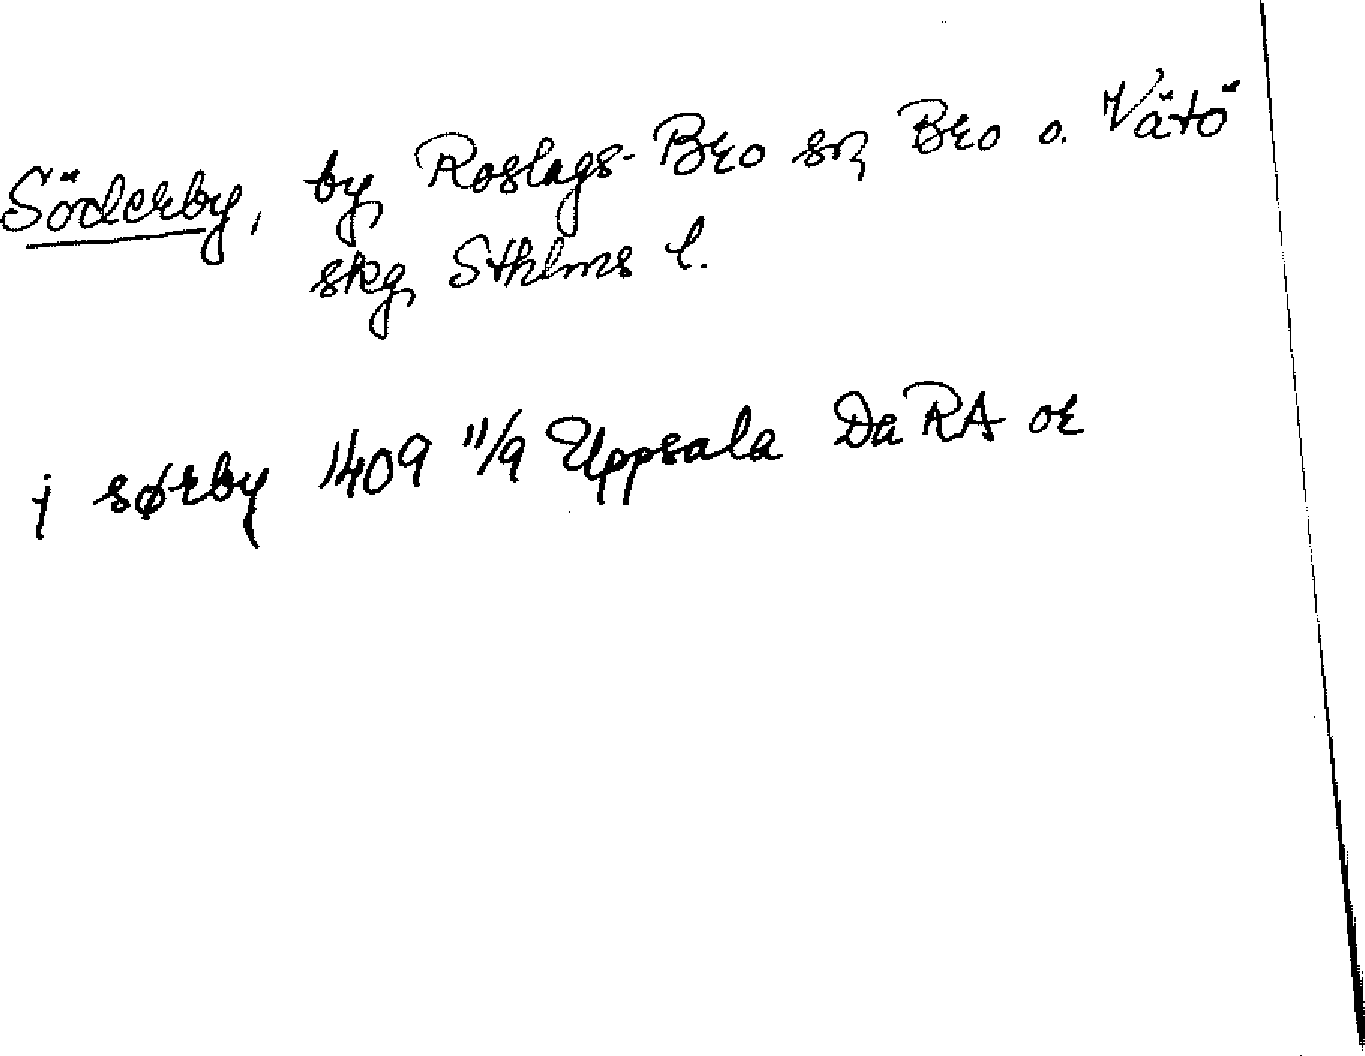 Söderby, by, Roslags-Bro sn, Bro o. Vätö
skg, Sthlms l.
j sørby 1409 11/9 Uppsala Da RA or